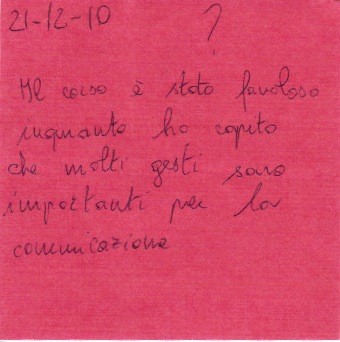 21-12-10 ?
Il corso è stato favoloso
inquanto ho capito
che molti gesti sono
importanti per la
comunicazione